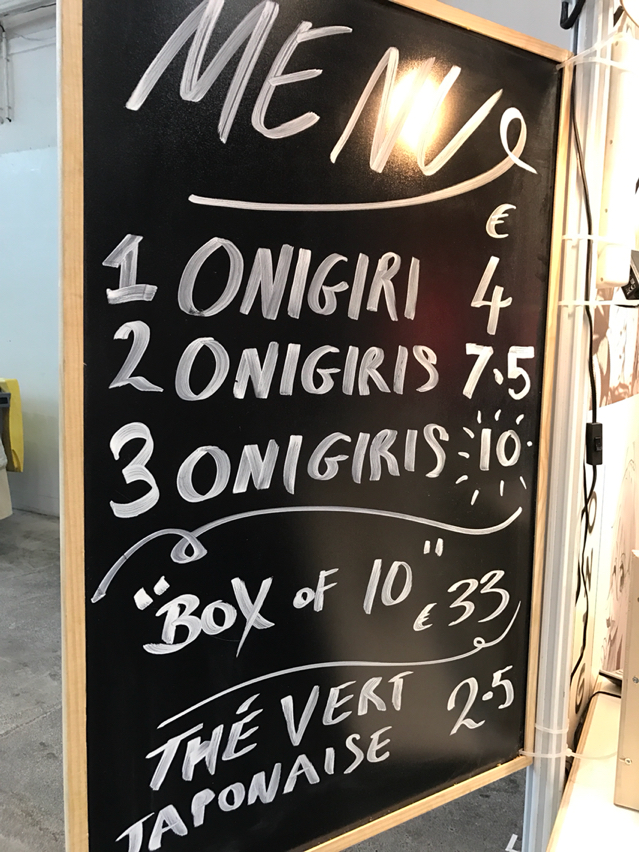 MENU
€
1 ONIGIRI 4
2 ONIGIRIS 7.5
3 ONIGIRIS 10
"BOX OF 10" € 33
THÉ VERT 2.5
JAPONAISE